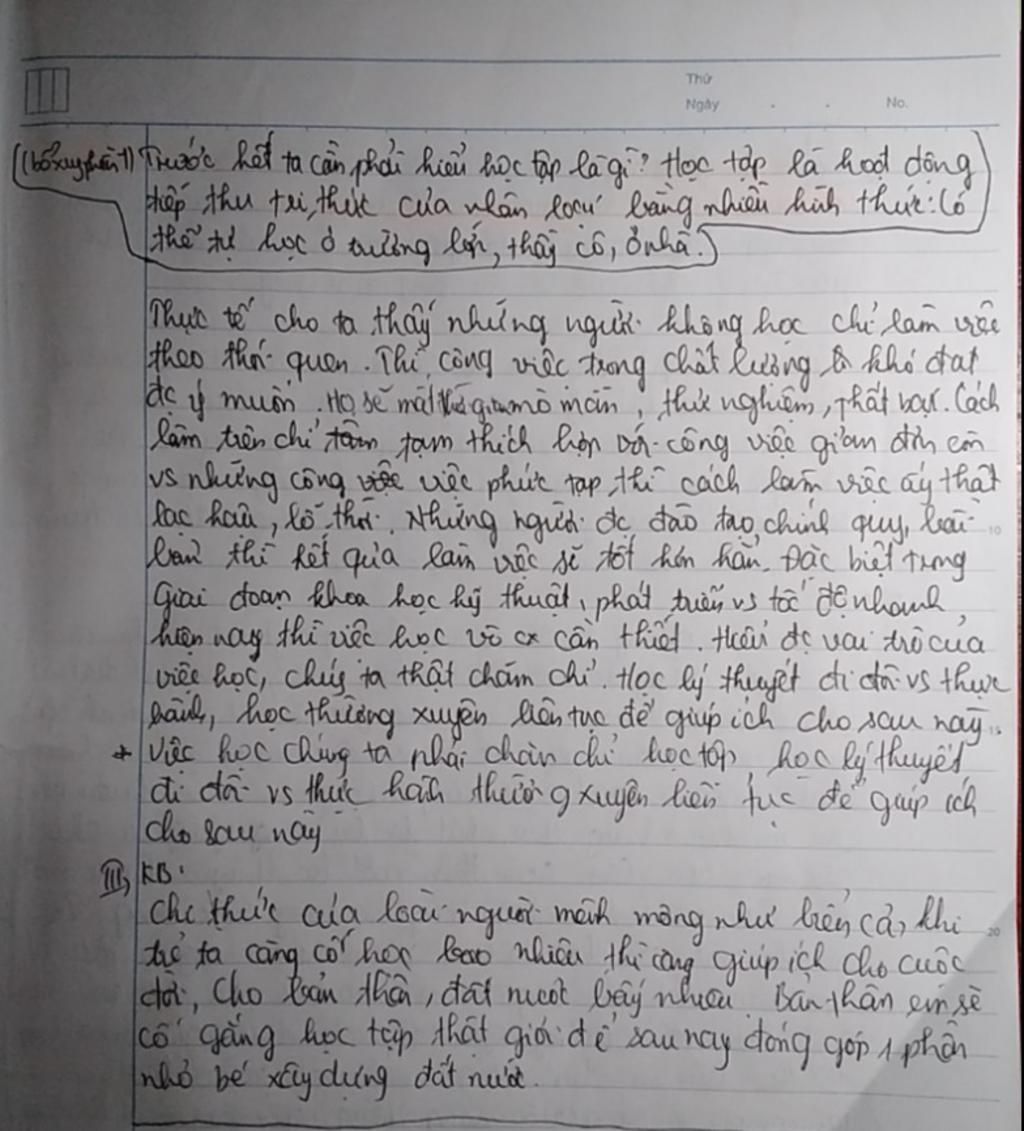 Thứ
Ngày . . No.
Trước hết ta cần phải hiểu học tập là gì? Học tập là hoạt động
tiếp thu tri thức của nhân loại bằng nhiều hình thức: Có
thể tự học ở trường lớp, thầy cô, ở nhà.
Thực tế cho ta thấy những người không học chỉ làm việc
theo thói quen. Thì công việc trong chất lượng khó đạt
đc ý muốn. Họ sẽ mất mò mẫn, thử nghiệm, thất bại. Cách
làm trên chỉ tạm thích hợp với công việc giản đơn còn
vs những công việc phức tạp, thì cách làm việc ấy thật
lạc hậu, lỗi thời. Những người đc đào tạo chính quy, bài
bản thì kết quả làm việc sẽ tốt hơn hẳn. Đặc biệt trong
giai đoạn khoa học kỹ thuật, phát triển vs tốc độ nhanh
hiện nay thì việc học vô cx cần thiết. Hiểu đc vai trò của
việc học, chúng ta thật chăm chỉ. Học lý thuyết đi đôi vs thực
hành, học thường xuyên liên tục để giúp ích cho sau này.
+ Việc học chúng ta phải chăm chỉ học tập, học lý thuyết
đi đôi vs thực hành thường xuyên liên tục để giúp ích
cho sau này
10
15
20
III, KB:
Chi thức của loài người mênh mông như biển cả, khi
ta càng cố học bao nhiêu thì càng giúp ích cho cuộc
đời, cho bản thân, đất nước bấy nhiêu. Bản thân em sẽ
cố gắng học tập thật giỏi để sau nay đóng góp 1 phần
nhỏ bé xây dựng đất nước.